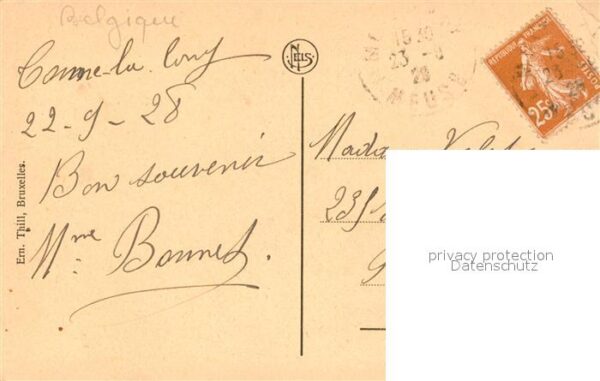 Belgique
Cosne-la long
22-9-28
Bon souvenir
Mme Bonnet.
Ern. Thill, Bruxelles.
NELS
15 30
23 - 9
28
MEUSE
REPUBLIQUE FRANÇAISE
25c
POSTES
Madame
235
privacy protection
Datenschutz